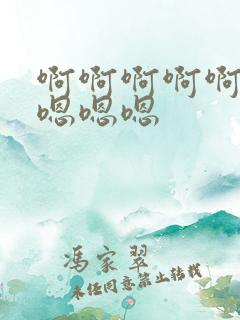 啊啊啊啊啊
嗯嗯嗯
冯家翠
未经同意禁止转载